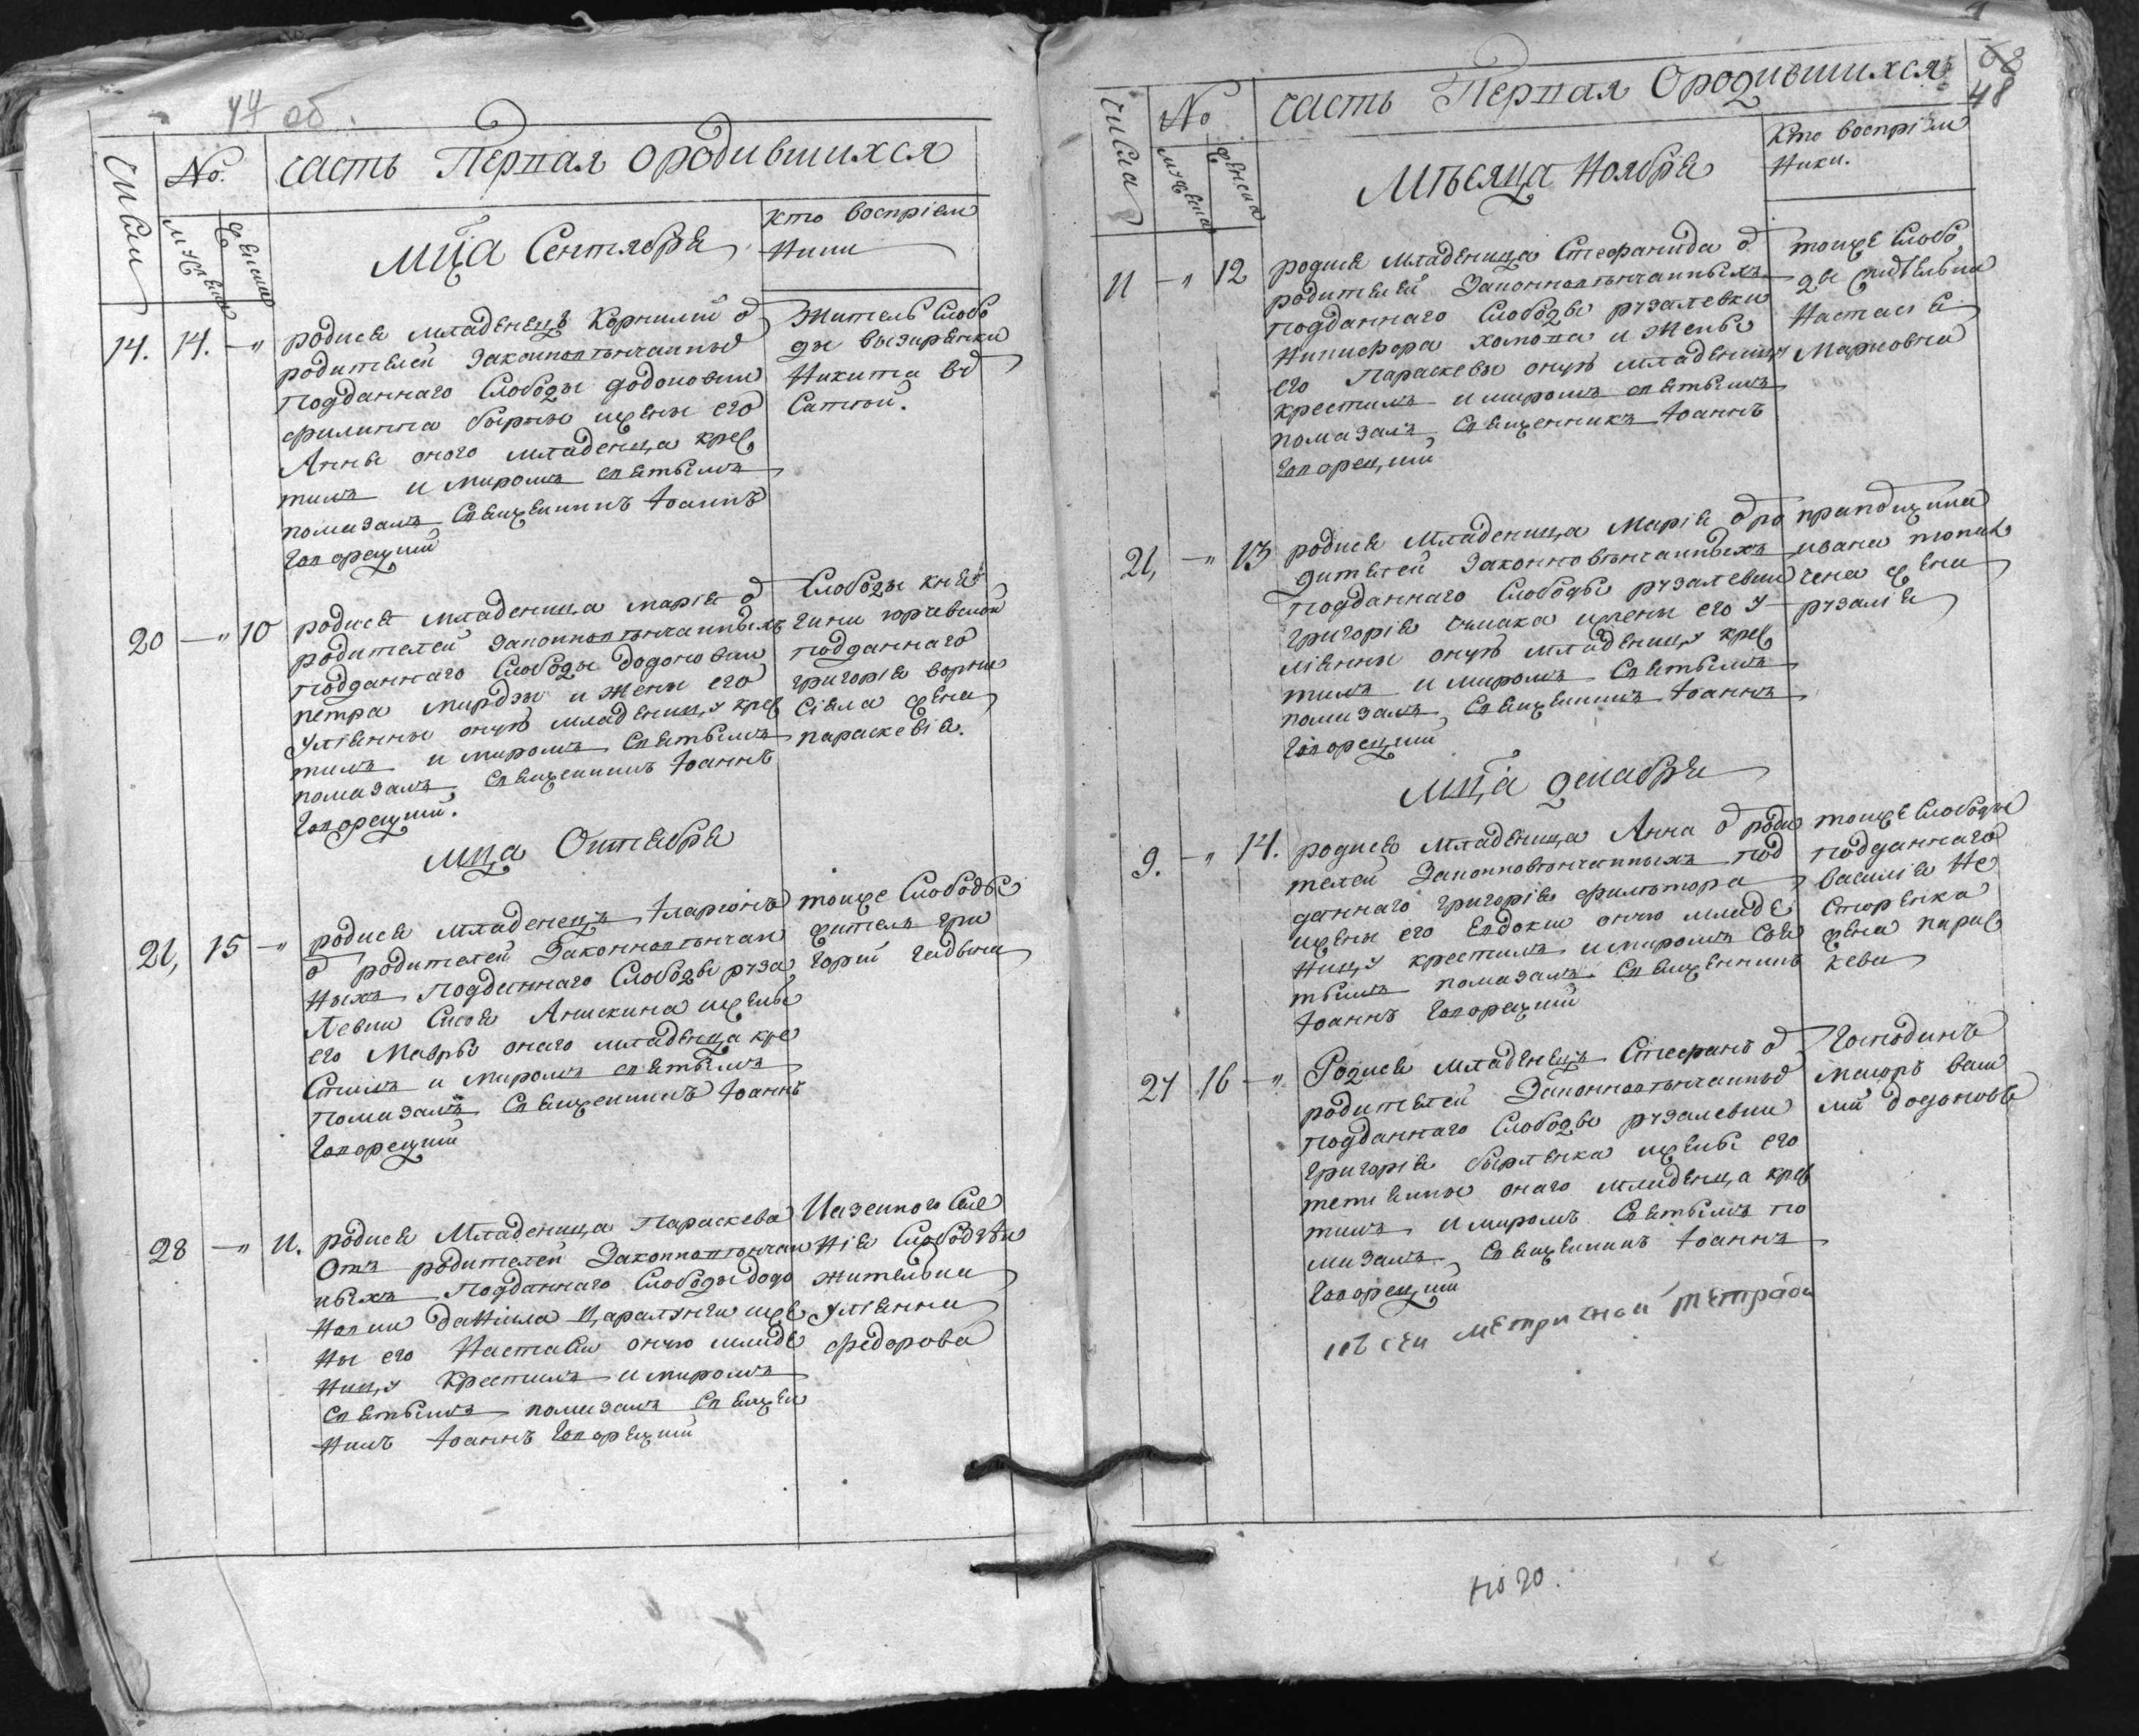 44 об.
Числа
№.
Часть Первая о родившихся
Муж еска
Женска
Мца Сентября
Кто восприем
ники
14. 14. - „
родися младенецъ Корнилий ѿ
родителей законновѣнчанныхъ
подданнаго Слободы Додоновки
Филиппа бырны ижены его
Анны оного младенца крес
тилъ и миромъ святымъ
помазалъ Священникъ Іоаннъ
Говорецкий
Житель Слобо
ды Визирвки
Никита
Сатной.
20 - „ 10
родися младеница Марія ѿ
родителей законновѣнчанныхъ
подданнаго Слободы Додоновки
Петра мирдзы и жены его
Уліянны онуѣ младеницу крес
тилъ и миромъ Святымъ
помазалъ Священникъ Іоаннъ
Говорецкий.
Слободы кня
гини
подданнаго
Григорія ворни
сіела жена
параскевія.
Мца Октября
21, 15 - „
родися младенецъ Іларіонъ
ѿ родителей законновѣнчан
ныхъ подданнаго Слободы руза
левки Сисоя Анискина ижены
его Мавры онаго младенца кре
стилъ и миромъ святымъ
помазалъ Священникъ Іоаннъ
Говорецкий
тоиже Слободы
житель Гри
горий
28 - „ 11.
родися Младеница Параскева
Отъ родителей законновѣнчан
ныхъ подданнаго Слободы Додо
новки Данiила Царалунги иже
ны его Настасіи оную младе
ницу крестилъ и миромъ
Святымъ помазалъ Священ
никъ Іоаннъ Говорецкий
Казенного Сле
нія
жителька
Уліянна
Федорова
68
48
Числа
№
Часть Первая О родившихся
Мужеска
Женска
Мѣсяца Ноября
Кто восприем
ники.
11 - „ 12
родися Младеница Стефанида ѿ
родителей законновѣнчанныхъ
подданнаго Слободы рузалевки
Никифора холопа и жены
его Параскевы онуѣ младеницу
крестилъ и миромъ святымъ
помазалъ Священникъ Іоаннъ
Говорецкий
тоиже Слобо
ды жителька
Настася
Марковна
21, - „ 13
родися младеница Марія ѿ ро
дителей законновѣнчанныхъ
подданнаго Слободы рузалевки
Григорія чумака ижены его У
ліянны онуѣ младеницу крес
тилъ и миромъ Святымъ
помазалъ Священникъ Іоаннъ
Говорецкий
прапощика
ивана
жена
рузалія
Мца декабря
9. - „ 14.
родися младеница Анна ѿ роди
телей законновѣнчанныхъ под
даннаго Григорія филимора
ижены его Евдокіи оную младе
ницу крестилъ имиромъ Свя
тымъ помазалъ Священникъ
Іоаннъ Говорецкий
тоиже Слободы
подданнаго
Василія Не
сторенка
жена парас
кева
27 16 - „
Родися Младенецъ Стефанъ ѿ
родителей законновѣнчанныхъ
подданнаго Слободы рузалевки
Григорія бырленка ижены его
тетянны онаго младенца крес
тилъ и миромъ Святымъ по
мазалъ Священникъ Іоаннъ
Говорецкий
Господинъ
маиоръ васи
лій додоновъ
метричной тетради